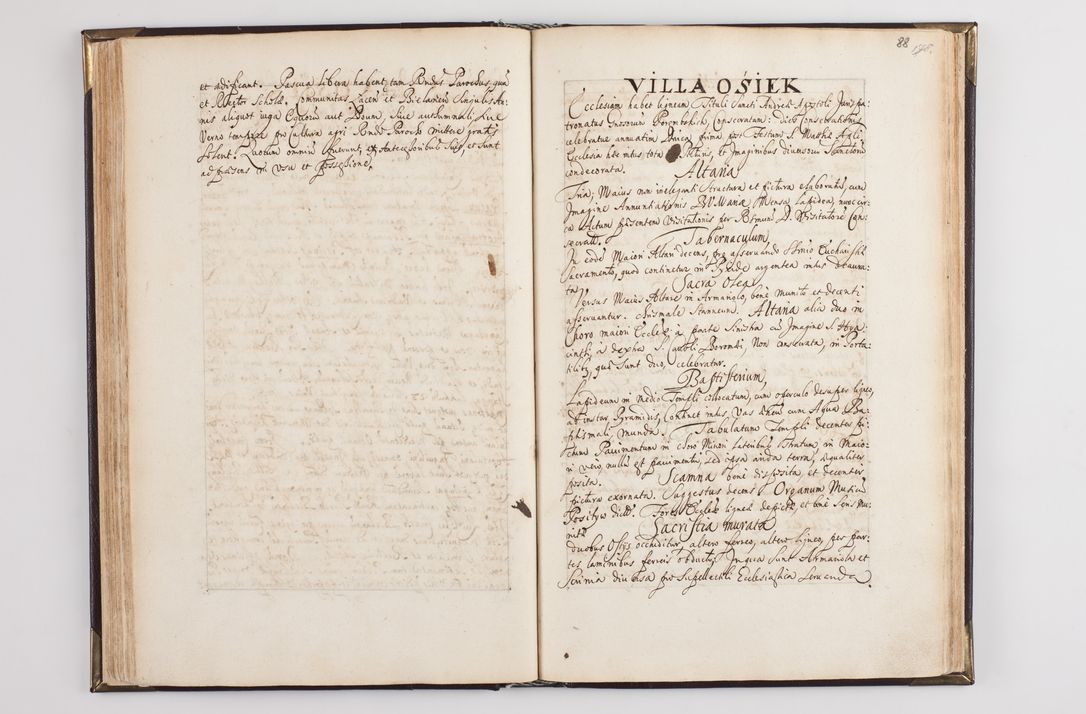 et ædificant. Pascua libera habent, tam Rndus Parochus, quam
et Rector Scholæ. Communitas
nis aliquot iuga Equorum aut Boum, sive Autumnali sive
Verno tempore pro Cultura agri Rndo Parocho mittere gratis
solent. Quorum omnium fuerunt, ex Antecessoribus suis, et sunt
ad præsens in usu et possessione.
88
VILLA OSIEK
Ecclesiam habet ligneam Tituli Sancti Andreæ Apostoli Juris pa-
tronatus Gnosorum Porembskich, Consecratam: Dies Consecrationis
celebratur annuatim Dnica prima post Festum S. Matthæ Apli
Ecclesia hæc intus tota picturis, et Imaginibus diversorum Sanctorum
condecorata. Altaria
Tria; Maius non inelegenti structura et pictura elaboratum, cum
Imagine Annuntiationis BVMariæ Mensa lapidea, nunc cir-
ca Actum præsentem Visitationis per Rdmum D. Visitatorem Con-
secrata. Tabernaculum,
In eodem Maiori Altari decens, pro asservando Ssmo Eucharistiæ
Sacramento, quod continetur in Pyxide argentea intus deaura-
ta. Sacra Olea
Versus Maius Altare in Armariolo, bene munito et decenti
asservantur. Chrismale stanneum. Altaria alia duo in
Choro maiori Ecclæ à parte sinistra cum Imagine S. Hya-
cinthi, a dextra S. Caroli Boromei, Non consecrata, in Porta-
tilibus, quæ sunt duo, celebratur.
Baptisterium,
Lapideum in medio Templi collocatum, cum operculo desuper ligneo,
ad instar Pyramidis, Continet intus, Vas cum Aqua Ba-
ptismali, munda. Tabulatum Templi decenter pi-
ctum Pavimentum in choro Minori lateribus stratum in Maio-
ri vero, nullum est pavimentum, sed ipsa arida terra, æqualiter
posita. Scamna bene disposita, et decenter
pictura exornata. Suggestus decens Organum Musicum
Positiw dictum. Fores Ecclæ ligneæ depictæ, et bene sunt mu-
nitæ Sacristia murata
duobus Ostijs occluditur altero ferreo, altero ligneo, per par-
tes laminibus ferreis obducto. In qua sunt Armariola et
Scrinia diversa pro Supellectili Ecclesiastica servanda.